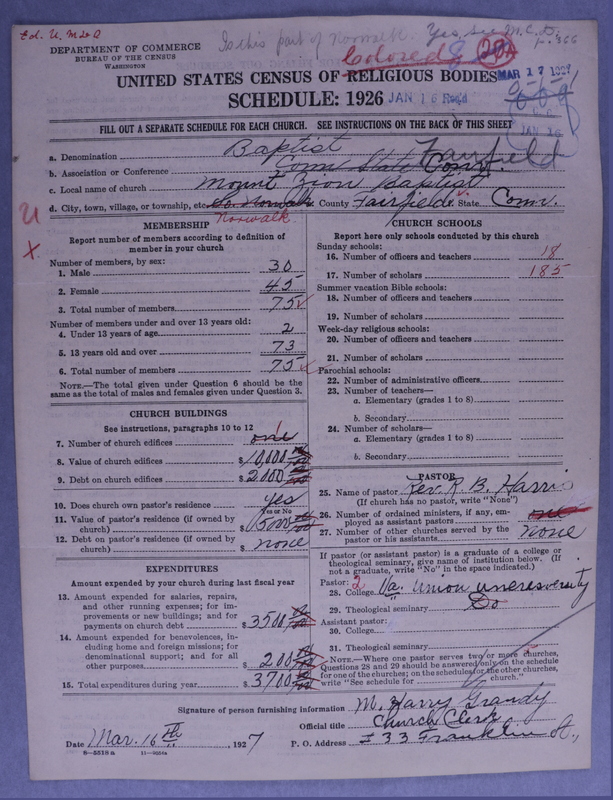 Ed. U. M & D
Is this part of Norwalk. Yes, see M.C.D. p. 366
DEPARTMENT OF COMMERCE
BUREAU OF THE CENSUS
WASHINGTON
Colored
UNITED STATES CENSUS OF RELIGIOUS BODIES
MAR 17 1927
SCHEDULE: 1926
JAN 16 Rec'd
JAN 16
FILL OUT A SEPARATE SCHEDULE FOR EACH CHURCH. SEE INSTRUCTIONS ON THE BACK OF THIS SHEET
a. Denomination Baptist
b. Association or Conference Conn State Conv. Fairfield
c. Local name of church Mount Zion Baptist
d. City, town, village, or township, etc. So. Norwalk County Fairfield State Conn.
Norwalk
MEMBERSHIP
Report number of members according to definition of member in your church
Number of members, by sex:
1. Male 30
2. Female 45
3. Total number of members 75
Number of members under and over 13 years old:
4. Under 13 years of age 2
5. 13 years old and over 73
6. Total number of members 75
NOTE.—The total given under Question 6 should be the same as the total of males and females given under Question 3.
CHURCH BUILDINGS
See instructions, paragraphs 10 to 12
7. Number of church edifices one 1
8. Value of church edifices $10,000
9. Debt on church edifices $2,000
10. Does church own pastor's residence? Yes
Yes or No
11. Value of pastor's residence (if owned by church) $5000
12. Debt on pastor's residence (if owned by church) $ none
EXPENDITURES
Amount expended by your church during last fiscal year
13. Amount expended for salaries, repairs, and other running expenses; for improvements or new buildings; and for payments on church debt $3500
14. Amount expended for benevolences, including home and foreign missions; for denominational support; and for all other purposes $200
15. Total expenditures during year $3700
CHURCH SCHOOLS
Report here only schools conducted by this church
Sunday schools:
16. Number of officers and teachers 18
17. Number of scholars 185
Summer vacation Bible schools:
18. Number of officers and teachers
19. Number of scholars
Week-day religious schools:
20. Number of officers and teachers
21. Number of scholars
Parochial schools:
22. Number of administrative officers
23. Number of teachers—
a. Elementary (grades 1 to 8)
b. Secondary
24. Number of scholars—
a. Elementary (grades 1 to 8)
b. Secondary
PASTOR
25. Name of pastor Rev. R. B. Harris
(If church has no pastor, write "None")
26. Number of ordained ministers, if any, employed as assistant pastors
27. Number of other churches served by the pastor or his assistants none
If pastor (or assistant pastor) is a graduate of a college or theological seminary, give name of institution below. (If not a graduate, write "No" in the space indicated.)
Pastor: 2
28. College Va. Union uneresversity
29. Theological seminary Do
Assistant pastor:
30. College
31. Theological seminary
NOTE.—Where one pastor serves two or more churches, Questions 28 and 29 should be answered only on the schedule for one of the churches; on the schedules for the other churches, write "See schedule for church."
Signature of person furnishing information M. Harry Grandy
Official title Church Clerk
Date Mar. 16th, 1927 P. O. Address # 33 Franklin St.,
8—5518a 11—9554a